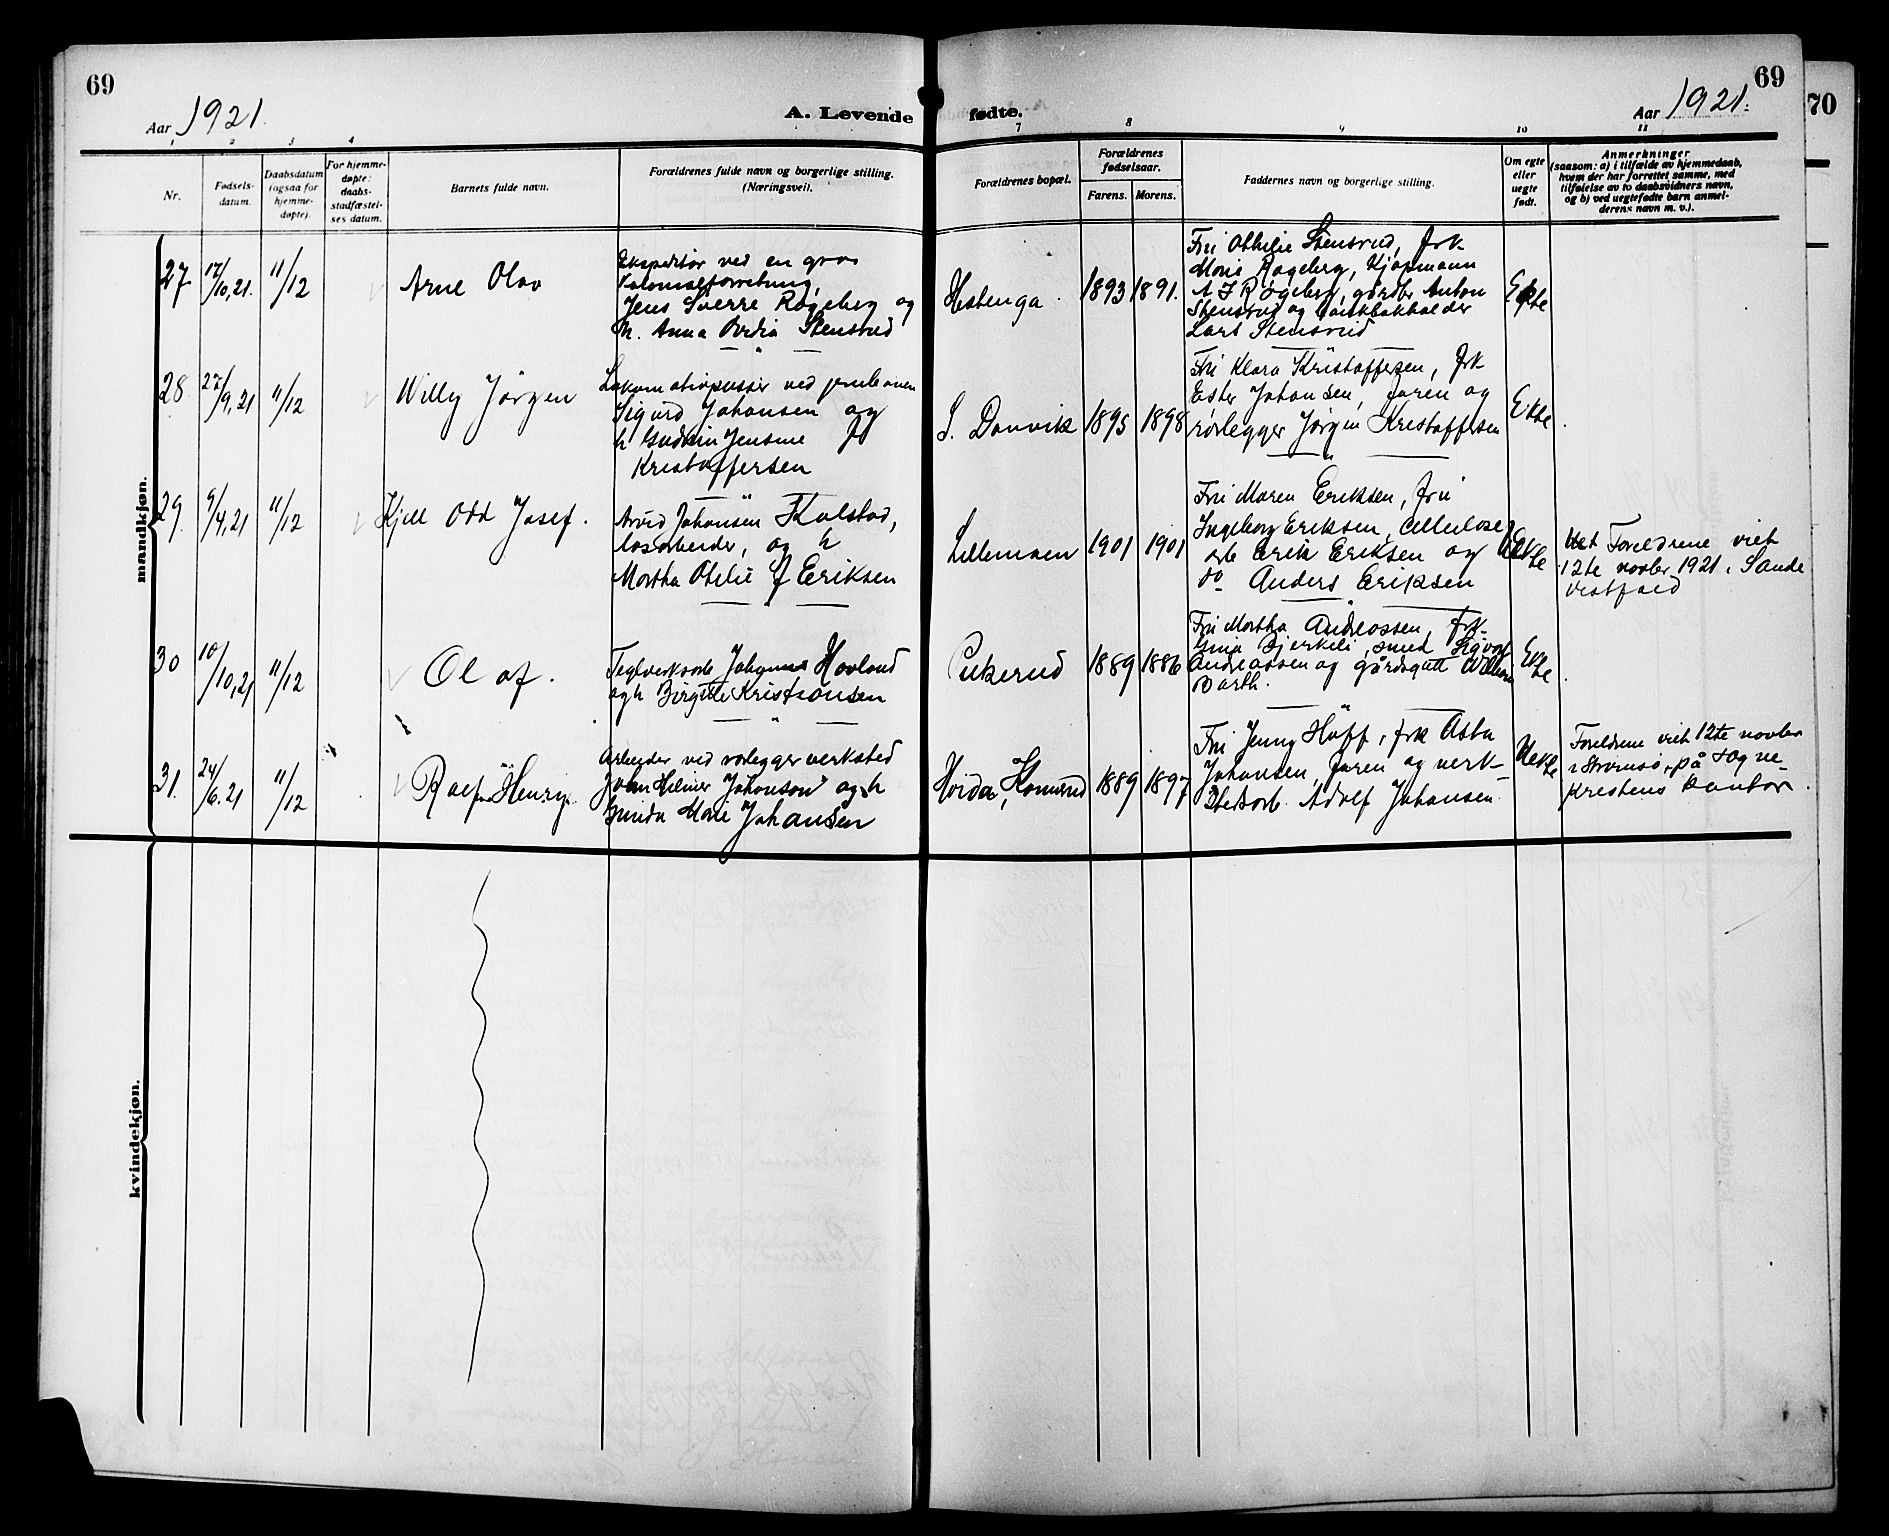 69
Aar 1921.
A. Levende
fødte.
Aar 1921.
69
70
1 2 3 4 7 8 9 10 11
Nr.
Fødsels-
datum.
Daabsdatum
(ogsaa for
hjemme-
døpte).
For hjemme-
døpte:
daabs-
stadfæstel-
ses datum.
Barnets fulde navn.
Forældrenes fulde navn og borgerlige stilling.
(Næringsvei).
Forældrenes bopæl.
Forældrenes
fødselsaar.
Farens. Morens.
Faddernes navn og borgerlige stilling.
Om egte
eller
uegte
født.
Anmerkninger
(saasom: a) i tilfælde av hjemmedaab,
hvem der har forrettet samme, med
tilføielse av to daabsvidners navn,
og b) ved uegtefødte barn anmel-
derens navn m. v.).
mandkjøn.
27
17/10,21.
11/12
Arne Olav
Ekspeditør ved en gros
Kolonialforretning,
Jens Sverre Røgeberg og
h. Anna Stensrud
Hestenga.
1893
1891.
Fru Othilie Stensrud, frk
Marie Røgeberg, Kjøpmann
A J Røgeberg, gårdbr Anton
Stensrud og bankbokholder
Lars Stensrud
Ekte
28
27/9,21
11/12
Willy Jørgen
Lokomotivpusser ved jernbanen
Sigurd Johansen og
h Gudrun Jensine f
Kristoffersen
S. Danvik
1895
1898
Fru Klara Kristoffersen, frk
Ester Johansen, faren og
rørlegger Jørgen Kristoffersen
Ekte
29
9/4,21
11/12
Kjell Odd Josef.
Arvid Johansen Kolstad,
løsarbeider, og h
Martha Otilie f Eriksen
Lillemoen
1901
1901
Fru Maren Eriksen, fru
Ingeborg Eriksen, cellulose
arb Erik Eriksen og
do Anders Eriksen
Uekte
Foreldrene viet
12te novbr 1921 i Sande
Vestfold
30
10/10,21
11/12
Olaf.
Teglverksarb Johannes Hovland
og h Birgitte Kristiansen
Pukerud
1889
1886
Fru Martha Andreassen, frk
Gina Bjerkeli, smed Sigvat
Andreassen og gårdsgutt William
Barth.
Ekte
31.
24/6.21
11/12
Rolf Henry.
Arbeider ved rørlegger verksted
Johan Hilmer Johanson og h
Marie Johansen
Hvida, Komerud
1889
1897
Fru Jenny Hoff, frk Asta
Johansen, faren og verk-
stedsarb. Adolf Johansen
Uekte
Foreldrene viet 12te novbr
i Strømsø, på sogne-
prestens kontor.
kvindekjøn.